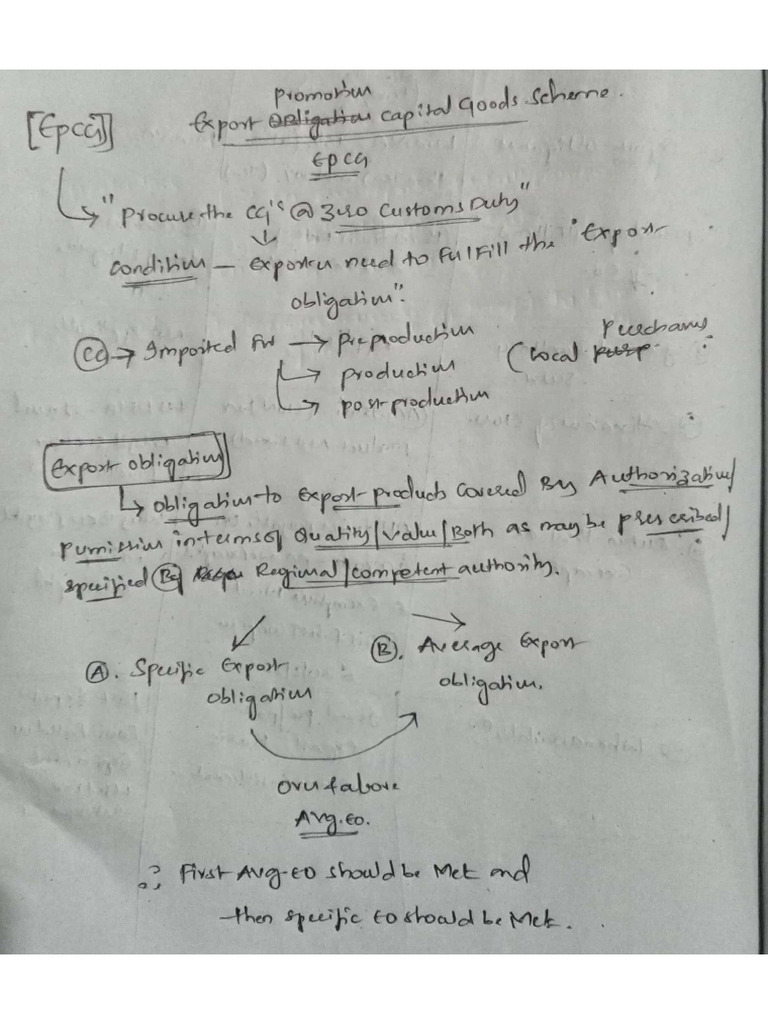 Promotion
[EPCG] Export Obligation Capital Goods Scheme.
EPCG
"Procure the CG's @ Zero Customs Duty"
Condition – Exporter need to FulFill the "Export
obligation".
CG → Imported For → Preproduction
Purchases
→ production (Local purp.
→ post-production
Export obligation
→ obligation to Export-products Covered By Authorization/
Permission in terms of Quality/Value/Both as may be prescribed/
specified By Regional/competent authority.
A. Specific Export
obligation
B. Average Export
obligation.
Over & above
Avg. EO.
∴ First Avg-EO should be Met and
then specific EO should be Met.